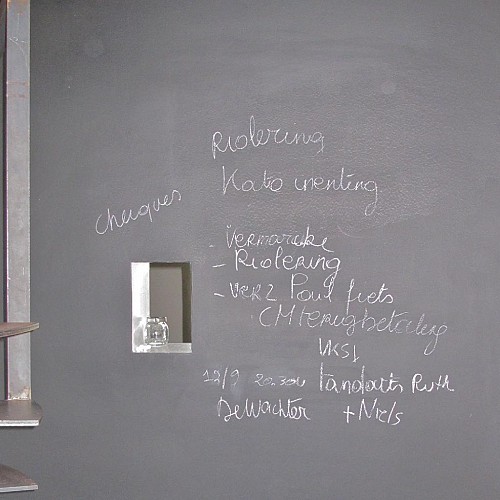 Riolering
Kato inenting
cheques
- Vermarcke
- Riolering
- VERZ Paul fiets
CM terugbetaling
VKSJ
12/9 20.30u tandarts Ruth
DeWachter + Niels